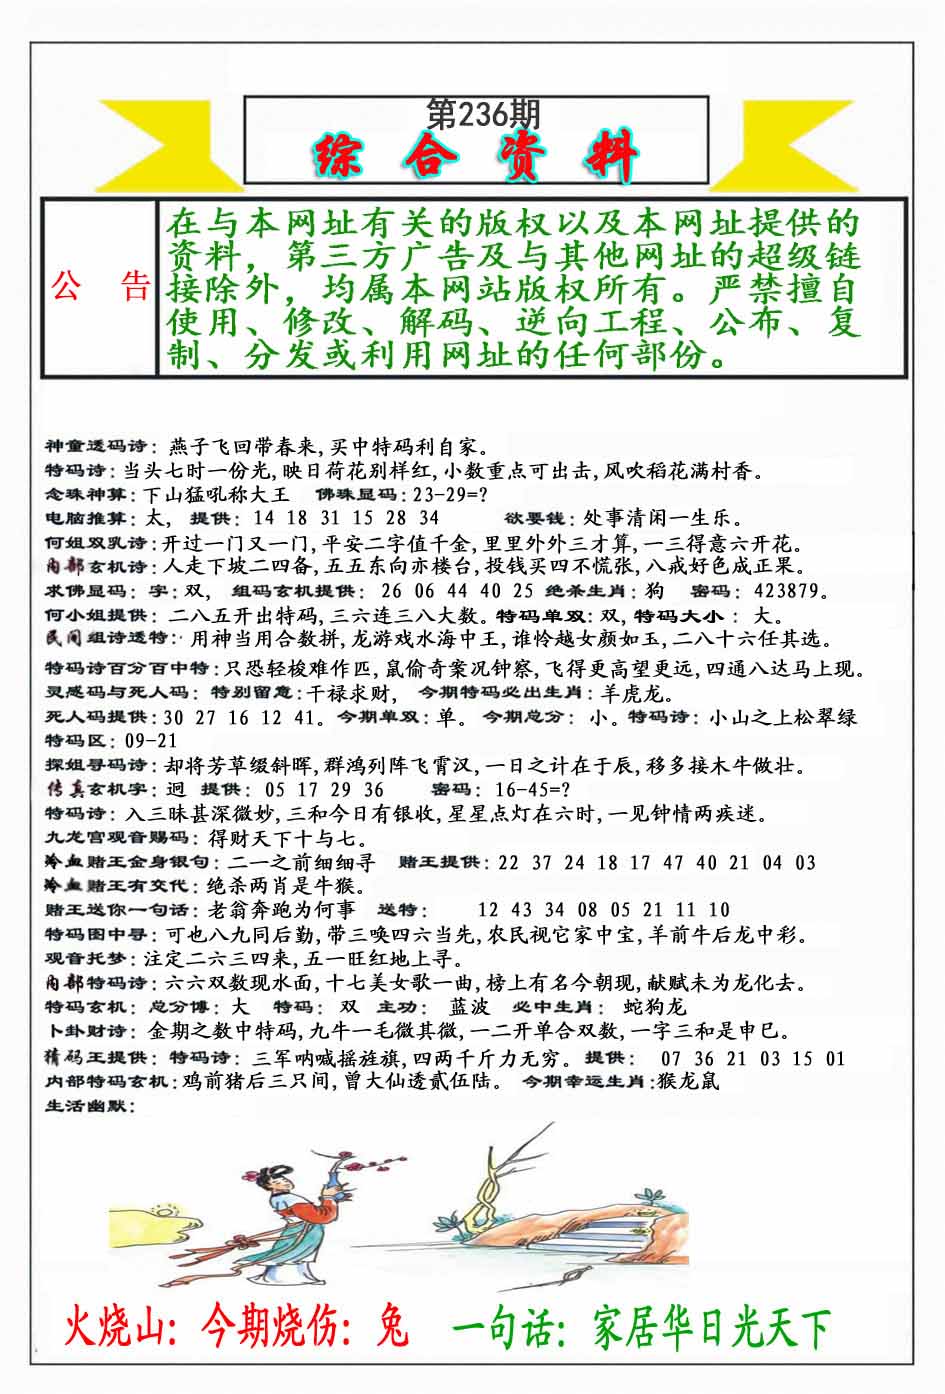 第236期
综合资料
公 告
在与本网址有关的版权以及本网址提供的
资料，第三方广告及与其他网址的超级链
接除外，均属本网站版权所有。严禁擅自
使用、修改、解码、逆向工程、公布、复
制、分发或利用网址的任何部份。
神童透码诗：燕子飞回带春来,买中特码利自家。
特码诗：当头七时一份光,映日荷花别样红,小数重点可出击,风吹稻花满村香。
念珠神算：下山猛吼称大王 佛珠显码：23-29=?
电脑推算：太, 提供：14 18 31 15 28 34 欲要钱：处事清闲一生乐。
何姐双乳诗：开过一门又一门,平安二字值千金,里里外外三才算,一三得意六开花。
内部玄机诗：人走下坡二四备,五五东向亦楼台,投钱买四不慌张,八戒好色成正果。
求佛显码：字：双, 组码玄机提供：26 06 44 40 25 绝杀生肖：狗 密码：423879。
何小姐提供：二八五开出特码,三六连三八大数。特码单双：双,特码大小：大。
民间组诗透特：用神当用合数拼,龙游戏水海中王,谁怜越女颜如玉,二八十六任其选。
特码诗百分百中特：只恐轻梭难作匹,鼠偷奇案况钟察,飞得更高望更远,四通八达马上现。
灵感码与死人码：特别留意：干禄求财, 今期特码必出生肖：羊虎龙。
死人码提供：30 27 16 12 41。今期单双：单。今期总分：小。特码诗：小山之上松翠绿
特码区：09-21
探姐寻码诗：却将芳草缀斜晖,群鸿列阵飞霄汉,一日之计在于辰,移多接木牛做壮。
传真玄机字：迥 提供：05 17 29 36 密码：16-45=?
特码诗：入三昧甚深微妙,三和今日有银收,星星点灯在六时,一见钟情两疾迷。
九龙宫观音赐码：得财天下十与七。
冷血赌王金身银句：二一之前细细寻 赌王提供：22 37 24 18 17 47 40 21 04 03
冷血赌王有交代：绝杀两肖是牛猴。
赌王送你一句话：老翁奔跑为何事 送特： 12 43 34 08 05 21 11 10
特码图中寻：可也八九同后勤,带三唤四六当先,农民视它家中宝,羊前牛后龙中彩。
观音托梦：注定二六三四来,五一旺红地上寻。
内部特码诗：六六双数现水面,十七美女歌一曲,榜上有名今朝现,献赋未为龙化去。
特码玄机：总分博：大 特码：双 主功：蓝波 必中生肖：蛇狗龙
卜卦财诗：金期之数中特码,九牛一毛微其微,一二开单合双数,一字三和是申巳。
猜码王提供：特码诗：三军呐喊摇旌旗,四两千斤力无穷。提供： 07 36 21 03 15 01
内部特码玄机：鸡前猪后三只间,曾大仙透贰伍陆。 今期幸运生肖：猴龙鼠
生活幽默：
火烧山：今期烧伤：兔 一句话：家居华日光天下